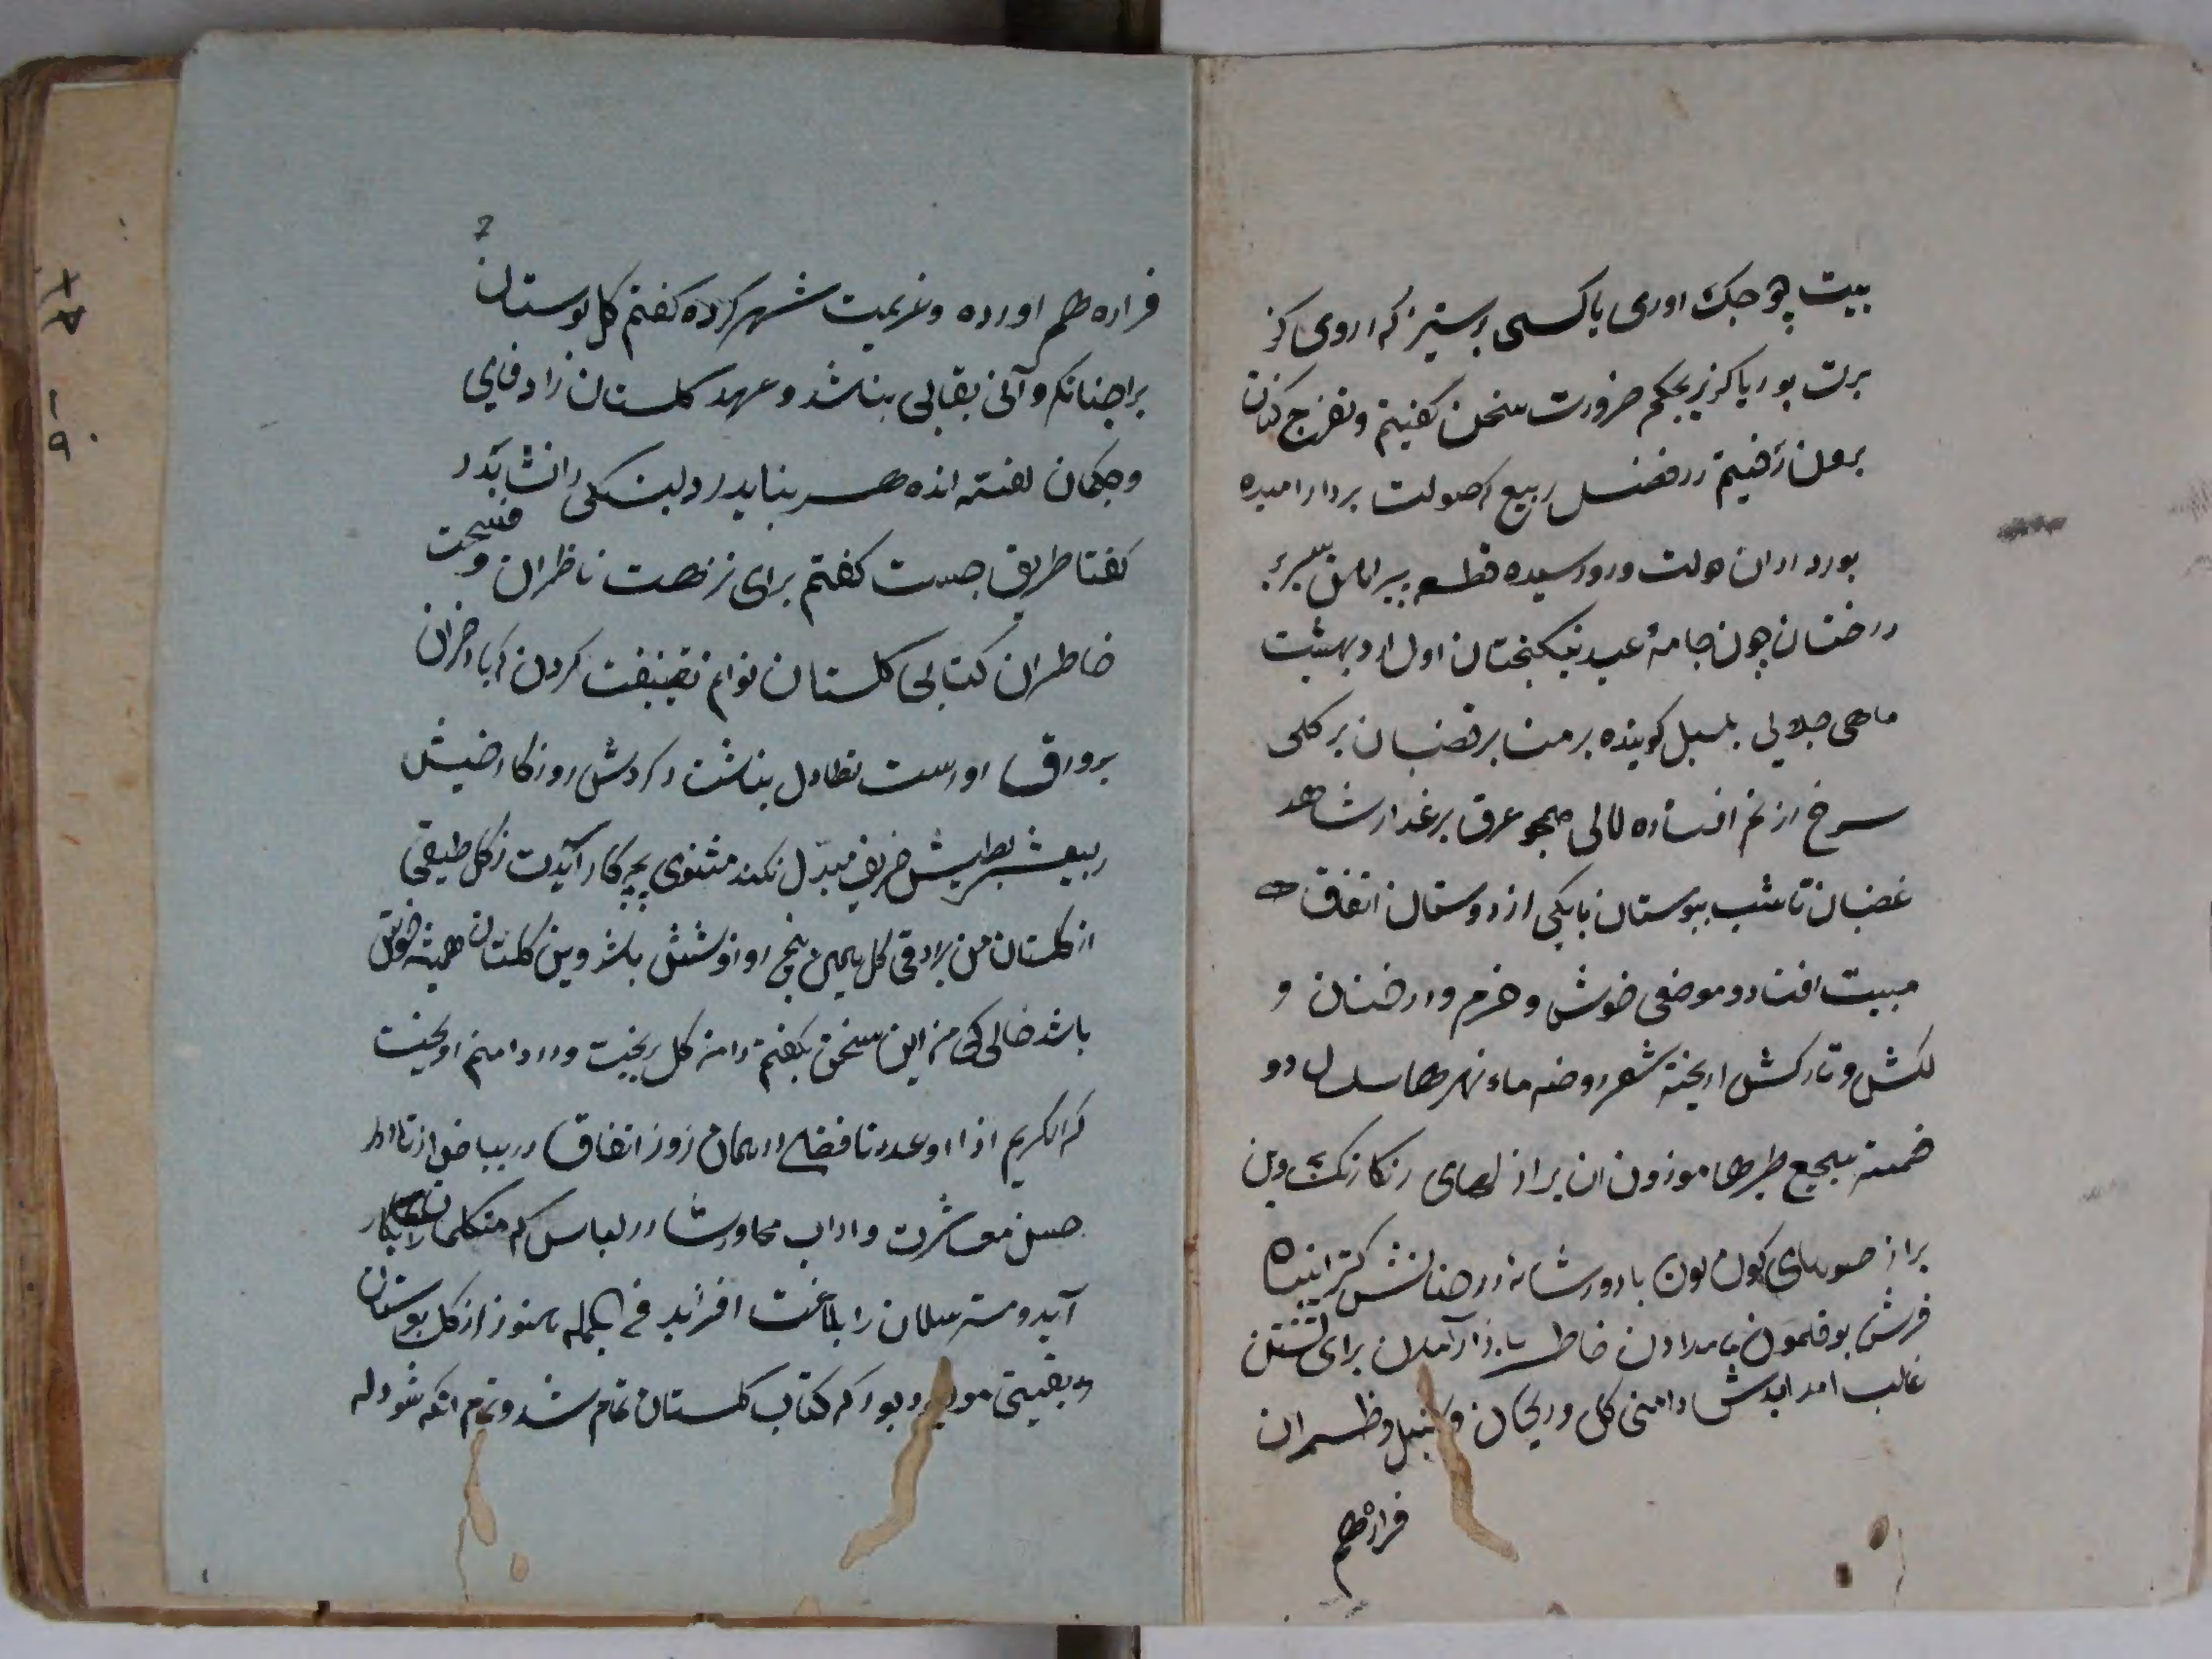 بیت چو جنک اوری باکسی بر ستیز که ازوی کز
برت بود یا کزیر بحکم ضرورت سخن کفتیم و تفرج کنان
برون رفتیم در فصل ربیع که صولت برد ارامیده
بود و اوان دولت ورد رسیده قطعه پیراهن سبز بر
درختان چون جامۀ عید نیکبختان اول اردبهشت
ماهی جلالی بلبل کوینده بر منابر قضبان بر کلی
سرخ از نم افتاده لالی همچو عرق بر عذار شاهد
غضبان تا شب ببوستان با یکی از دوستان اتفاق
مبیت افتاد و موضعی خوش و خرم و درختان و
لکش و تارکش اویخته شعر روضه ماء نهرها سلسال دو
ضمته سجع طیرها موزون ان پر از لهای رنکا رنک وین
پر از میوهای کون کون باد در سایۀ درختانش کسترانیده
فرش بوقلمون بامدادن خاطر باز آمدن برای نشستن
غالب امد دیدمش دامنی کل و ریحان و سنبل و ظمیران
فراهم
7
فراهم اورده و عزیمت شهر کرده کفتم کل بوستان
را چنانکه دانی بقایی نباشد و عهد کلستان را وفایی
و حکمان کفته اند هر چه نپاید دلبستکی را نشاید
کفتا طریق چیست کفتم برای نزهت ناظران و فسحت
خاطران کتابی کلستان توانم تصنیفت کردن که باد خزان
بر ورق او دست تطاول نباشد و کردش روزکار عیش
ربیعش بطیش خریف مبدّل نکند مثنوی بچه کار آیدت ز کل طبقی
از کلستان من ببر ورقی کل همین پنج روز و شش باشد وین کلستان همیشه خوش
باشد حالی که من این سخن بکفتم دامن کل بریخت و در دامنم اویخت
که الکریم اذا وعد وفا فصلی در همان روز اتفاق در بیاض افتاد در
حسن معاشرت و اداب محاورت در لباس که متکلمان را بکار
آید و مترسلان را بلاغت افزاید فی الجمله هنوز از کل بوستان
بقیتی موجود بود که کتاب کلستان تمام شد و تمام انکه شود که